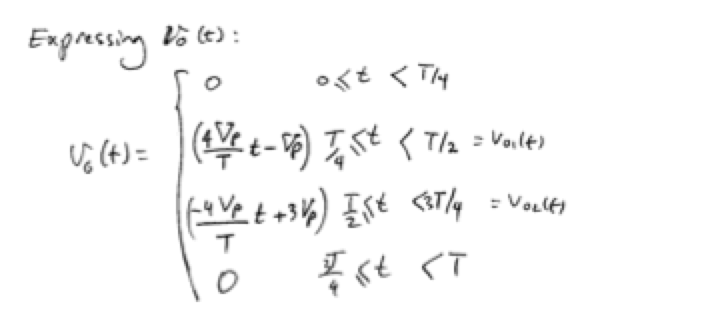 Expressing Vo(t):
0 0 ≤ t < T/4
Vo(t) = { (4Vp/T t - Vp) T/4 ≤ t < T/2 = Vo1(t)
(-4Vp/T t + 3Vp) T/2 ≤ t < 3T/4 = Vo2(t)
0 3T/4 ≤ t < T